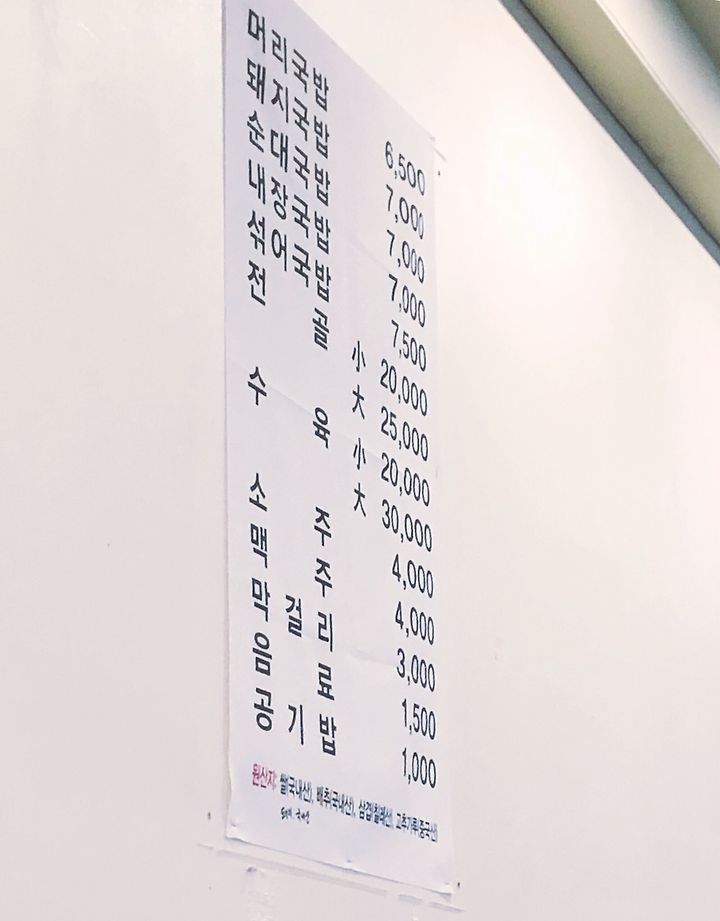 머리국밥 6,500
돼지국밥 7,000
순대국밥 7,000
내장국밥 7,000
섞어국밥 7,500
전골 小 20,000
大 25,000
수육 小 20,000
大 30,000
소주 4,000
맥주 4,000
막걸리 3,000
음료 1,500
공기밥 1,000
원산지: 쌀(국내산), 배추(국내산), 삼겹(칠레산), 고추가루(중국산)